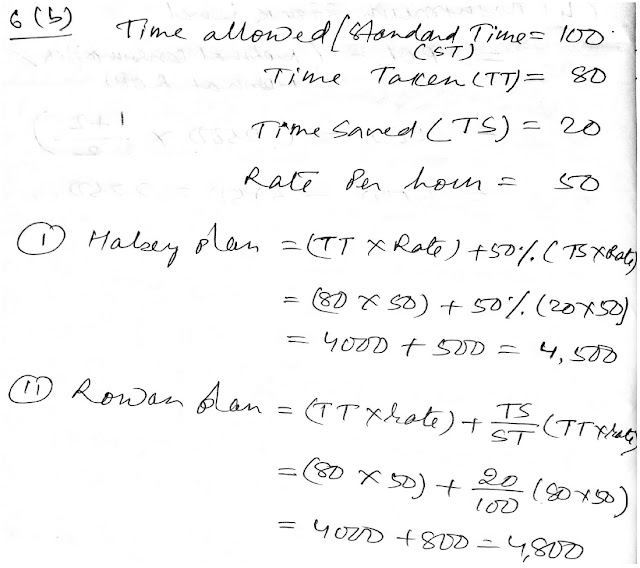 6 (b) Time allowed/Standard Time = 100
(ST)
Time Taken (TT) = 80
Time Saved (TS) = 20
Rate Per hour = 50
(i) Halsey plan = (TT × Rate) + 50% (TS × Rate)
= (80 × 50) + 50% (20×50)
= 4000 + 500 = 4,500
(ii) Rowan plan = (TT × rate) + TS/ST (TT × rate
= (80 × 50) + 20/100 (80×50)
= 4000 + 800 = 4,800